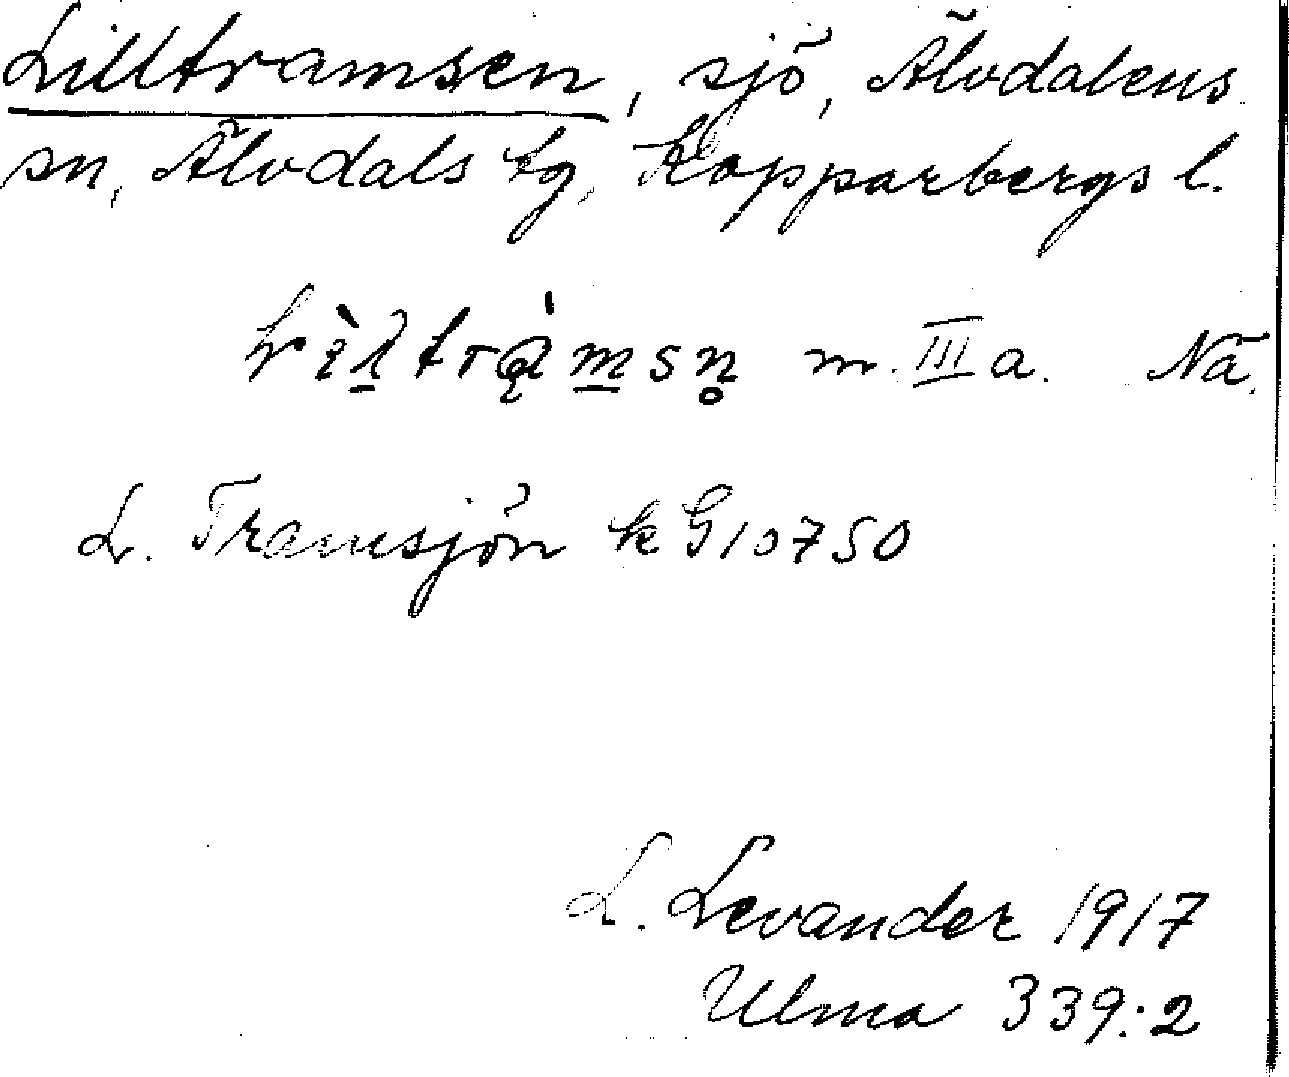 Lilltramsen, sjö, Älvdalens
sn, Älvdals tg, Kopparbergs l.
m. III a. Nä.
L. Tramsjön k G10750
L. Levander 1917
Ulma 339:2